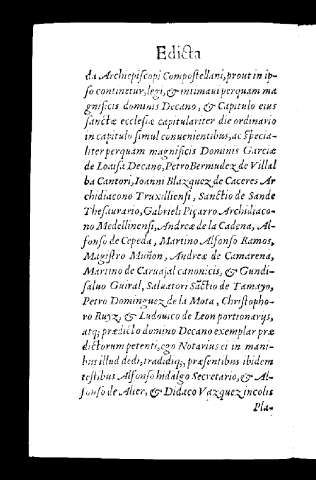 Edicta
da Archiepiscopi Compostellani, prout in ip-
so continetur, legi, & intimaui perquam ma
gnificis dominis Decano, & Capitulo eius
sanctæ ecclesiæ capitulariter die ordinario
in capitulo simul conuenientibus, ac specia-
liter perquam magnificis Dominis Garciæ
de Loaisa Decano, Petro Bermudez de Villal
ba Cantori, Ioanni Blazquez de Caceres Ar
chidiacono Truxillensi, Sanctio de Sande
Thesaurario, Gabrieli Piçarro Archidiaco-
no Medellinensi, Andreæ de la Cadena, Al-
fonso de Cepeda, Martino Alfonso Ramos,
Magistro Muñon, Andreæ de Camarena,
Martino de Caruajal canonicis, & Gundi-
saluo Guiral, Saluatori Sāctio de Tamayo,
Petro Dominguez de la Mota, Christopho-
ro Ruyz, & Ludouico de Leon portionarijs,
atq; prædicto domino Decano exemplar præ
dictorum petenti, ego Notarius ei in mani-
bus illud dedi, tradidiq;, præsentibus ibidem
testibus Alfonso hidalgo Secretario, & Al-
fonso de Alier, & Didaco Vazquez incolis
Pla-